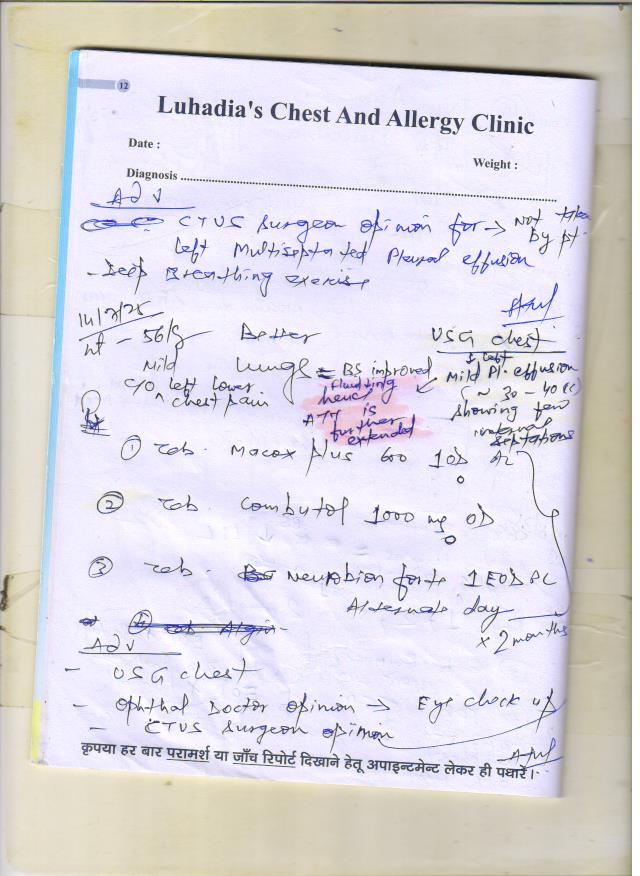 12
Luhadia's Chest And Allergy Clinic
Date :
Weight :
Diagnosis
Adv
CTVS Surgeon opinion for → Not taken by pt.
Left Multiseptated Pleural effusion
- Deep Breathing exercise
wt - 56/g Better
Mild Lungs = BS improved
C/O left lower chest pain
USG chest
left
Mild Pl. effusion
(~ 30 - 40 cc)
Showing few
internal
septations
hence
ATT is
further
extended
① Tab. Macox plus 600 1 OD
② Tab. Combutol 1000 mg OD
③ Tab. Neurobion forte 1 EOD PC
Alternate day
x 2 months
Adv
- USG chest
- Ophthal Doctor opinion → Eye check up
- CTVS Surgeon opinion
कृपया हर बार परामर्श या जाँच रिपोर्ट दिखाने हेतू अपाइन्टमेन्ट लेकर ही पधारें।